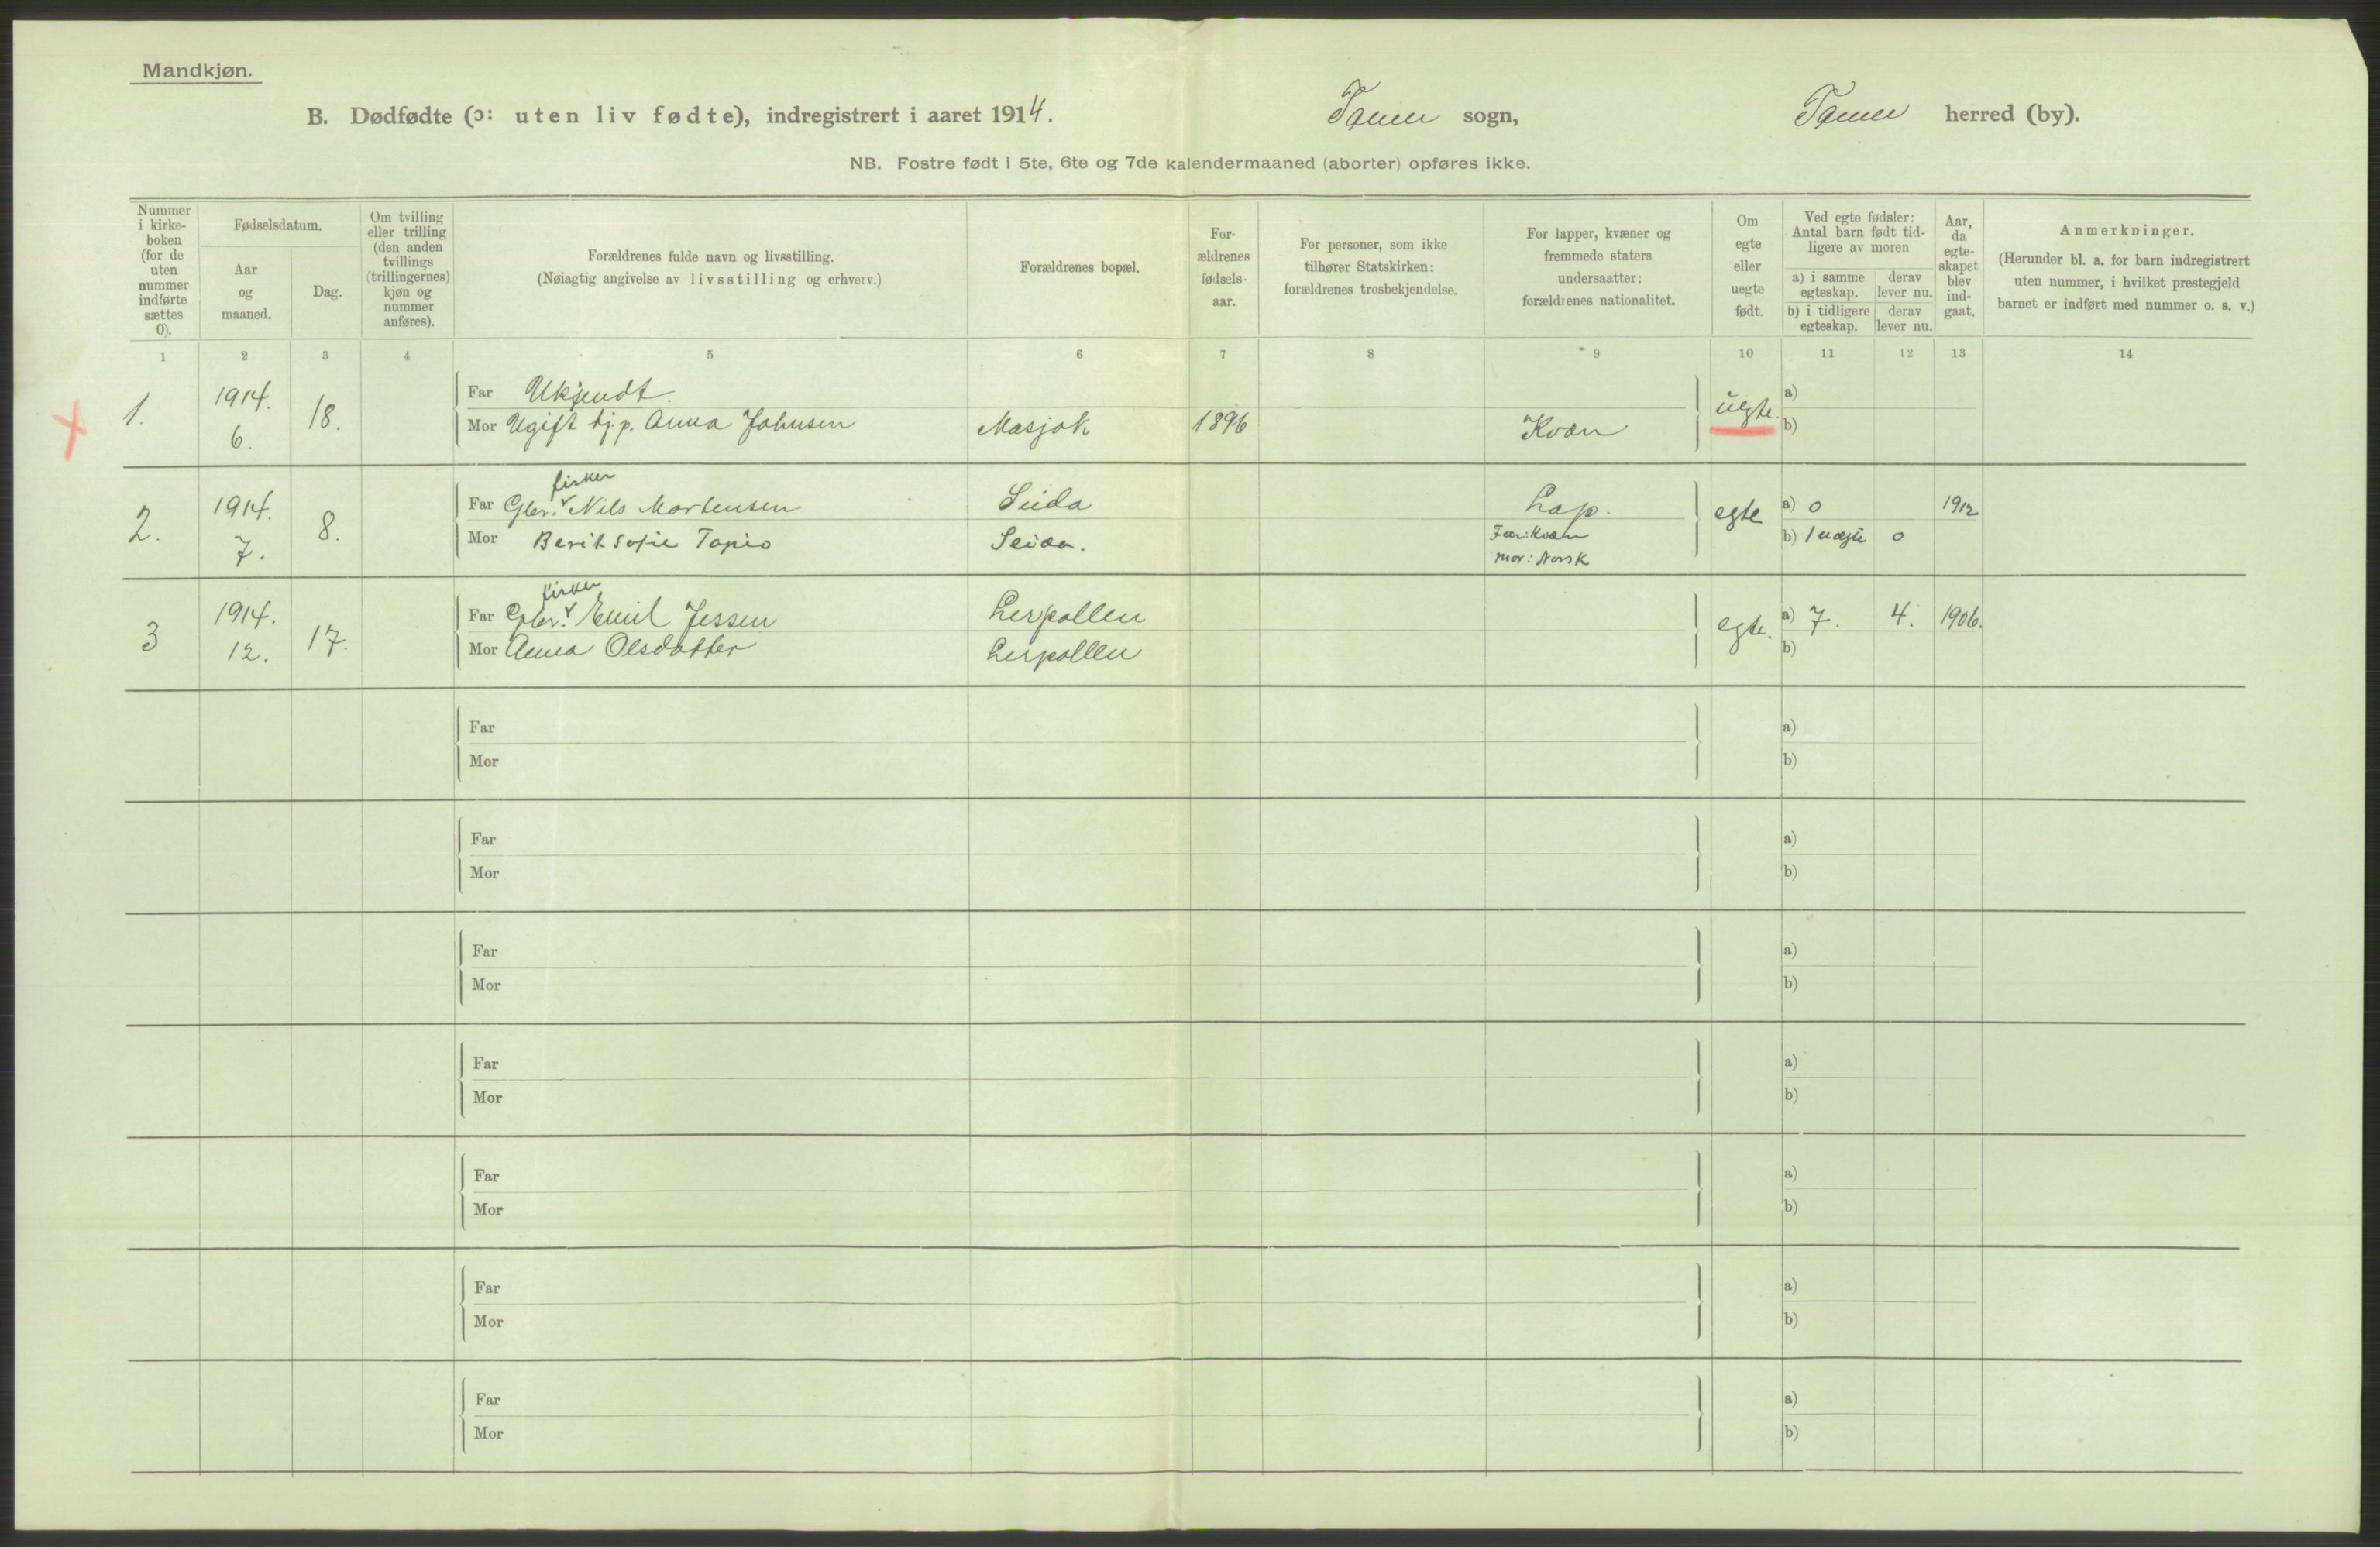 Mandkjøn.
B. Dødfødte (ɔ: uten liv fødte), indregistrert i aaret 1914. Tanen sogn, Tanen herred (by).
NB. Fostre født i 5te, 6te og 7de kalendermaaned (aborter) opføres ikke.
Nummer i kirke-boken (for de uten nummer indførte sættes 0).
Fødselsdatum.
Aar og maaned.
Dag.
Om tvilling eller trilling (den anden tvillings (trillingernes) kjøn og nummer anføres).
Forældrenes fulde navn og livsstilling.
(Nøiagtig angivelse av livsstilling og erhverv.)
Forældrenes bopæl.
For-ældrenes fødsels-aar.
For personer, som ikke tilhører Statskirken: forældrenes trosbekjendelse.
For lapper, kvæner og fremmede staters undersaatter: forældrenes nationalitet.
Om egte eller uegte født.
Ved egte fødsler: Antal barn født tid-ligere av moren
a) i samme egteskap.
derav lever nu.
b) i tidligere egteskap.
derav lever nu.
Aar, da egte-skapet blev ind-gaat.
Anmerkninger.
(Herunder bl. a. for barn indregistrert uten nummer, i hvilket prestegjeld barnet er indført med nummer o. s. v.)
1 2 3 4 5 6 7 8 9 10 11 12 13 14
1. 1914. 6. 18. Far Ukjendt. uegte. a)
Mor Ugift tj.p. Anna Johnsen Masjok 1896 Kvæn b)
fisker
2. 1914. 7. 8. Far Gbr. v Nils Mortensen Seida Lap. egte a) 0 1912
Mor Berit Sofie Tapio Seida. Far: Kvæn b) 1 uægte 0
Mor: Norsk
fisker
3 1914. 12. 17. Far Gbr. v Emil Jessen Lerpollen egte. a) 7. 4. 1906.
Mor Anna Olsdatter Lerpollen b)
Far a)
Mor b)
Far a)
Mor b)
Far a)
Mor b)
Far a)
Mor b)
Far a)
Mor b)
Far a)
Mor b)
Far a)
Mor b)